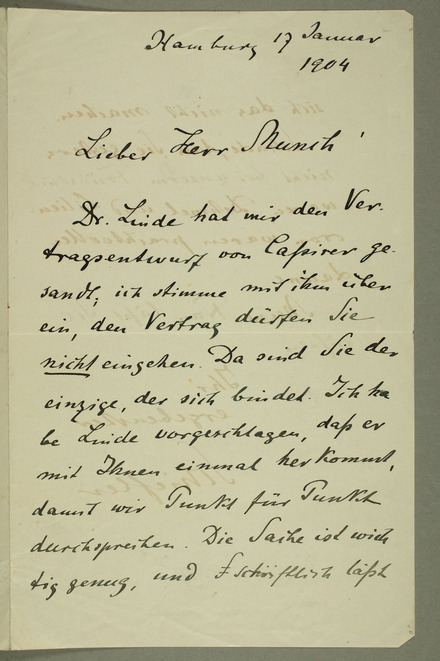 Hamburg 17 Januar
1904
Lieber Herr Munch!
Dr. Linde hat mir den Ver-
tragsentwurf von Cassirer ge-
sandt, ich stimme mit ihm über
ein, den Vertrag dürfen Sie
nicht eingehen. Da sind Sie der
einzige, der sich bindet. Ich ha
be Linde vorgeschlagen, daß er
mit Ihnen einmal herkommt,
damit wir Punkt für Punkt
durchsprechen. Die Sache ist wich
tig genug, und schriftlich läßt